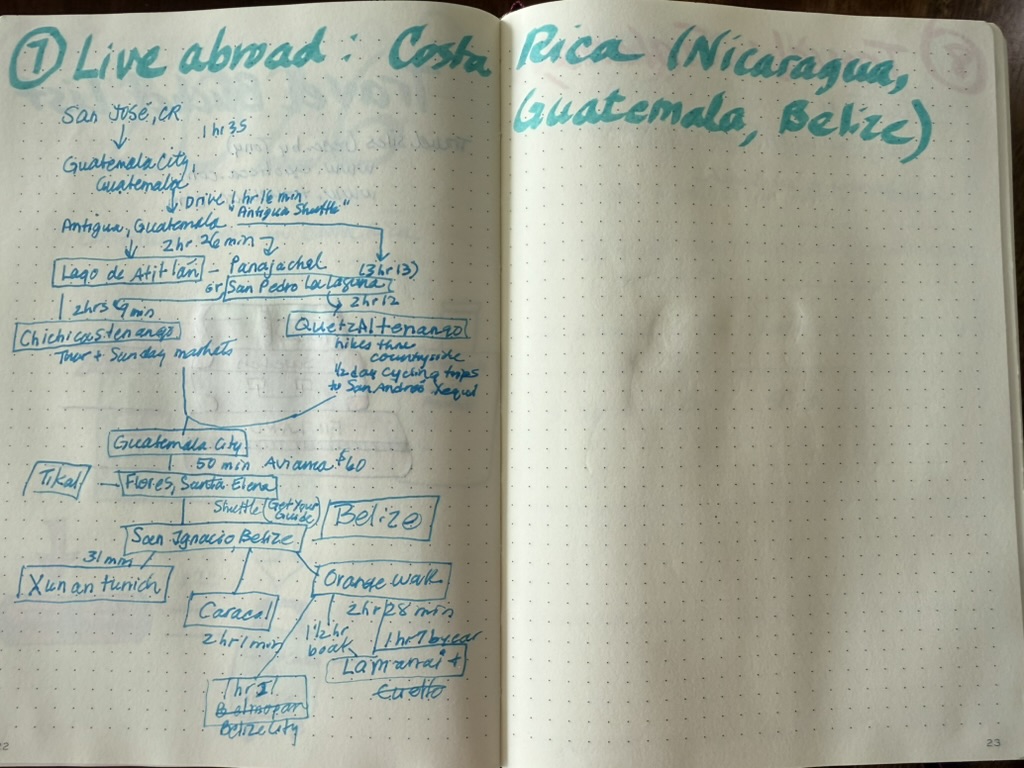 ⑦ Live abroad: Costa Rica (Nicaragua,
Guatemala, Belize)
San José, CR
1 hr 35
Guatemala City,
Guatemala
Drive 1 hr 16 min
"Antigua Shuttle"
Antigua, Guatemala
2 hr 26 min
Lago de Atitlán - Panajachel
(3 hr 13)
or San Pedro La Laguna
2 hrs 9 min
2 hr 12
Chichicastenango
Thur + Sunday markets
QuetzAltenango
hikes thru
countryside
1/2 day cycling trips
to San Andrés Xequl
Guatemala City
50 min Avianca $60
Tikal
Flores, Santa Elena
Shuttle (Get Your
Guide)
Belize
San Ignacio Belize
31 min
Xunantunich
Orange Walk
Caracol
2 hr 1 min
2 hr 28 min
1 1/2 hr
boat
1 hr 7 by car
Lamanai +
Cuello
1 hr 1
Belmopan
Belize City
22
23